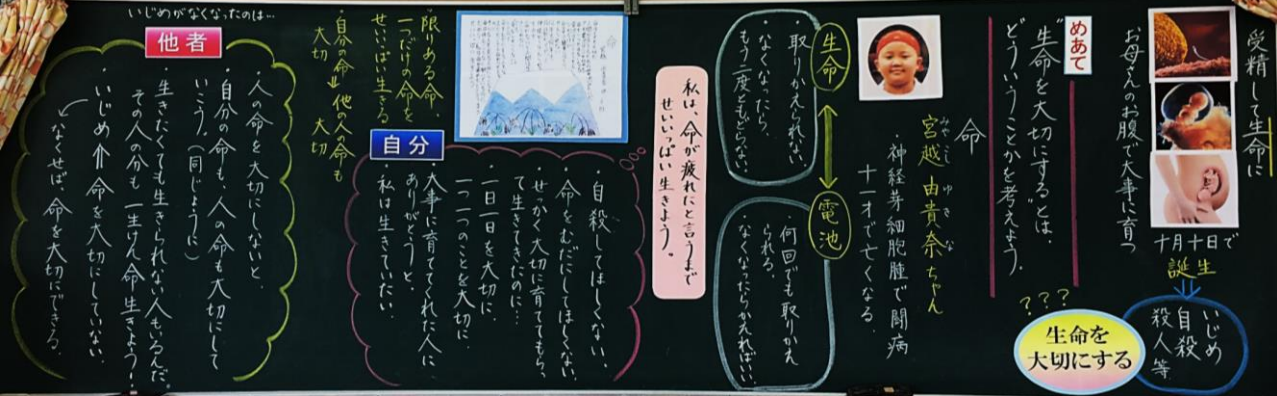 受精して生命に
お母さんのお腹で大事に育つ
十月十日で
誕生
いじめ
自殺
殺人等
???
生命を
大切にする
めあて
"生命を大切にする"とは、
どういうことかを考えよう。
命
宮越由貴奈ちゃん
みやこし ゆきな
・神経芽細胞腫で闘病
十一才で亡くなる。
生命
・取りかえられない。
・なくなったら、
もう二度ともどらない。
電池
・何回でも取りかえ
られる。
・なくなったらかえればいい。
私は、命が疲れたと言うまで
せいいっぱい生きよう。
自分
・自殺してほしくない。
・命をむだにしてほしくない。
・せっかく大切に育ててもらっ
て生きてきたのに…
・一日一日を大切に。
一つ一つのことを大切に
・大事に育ててくれた人に
ありがとうと、
・私は生きていたい。
・限りある命、
一つだけの命を
せいいっぱい生きる
・自分の命→他の人の命も
大切 大切
いじめがなくなったのは…
他者
・人の命を大切にしないと、
・自分の命も、人の命も大切にして
いこう。(同じように)
・生きたくても生きられない人もいるんだ。
その人の分も一生けん命生きよう!
・いじめ⇑命を大切にしていない。
なくせば、命を大切にできる。